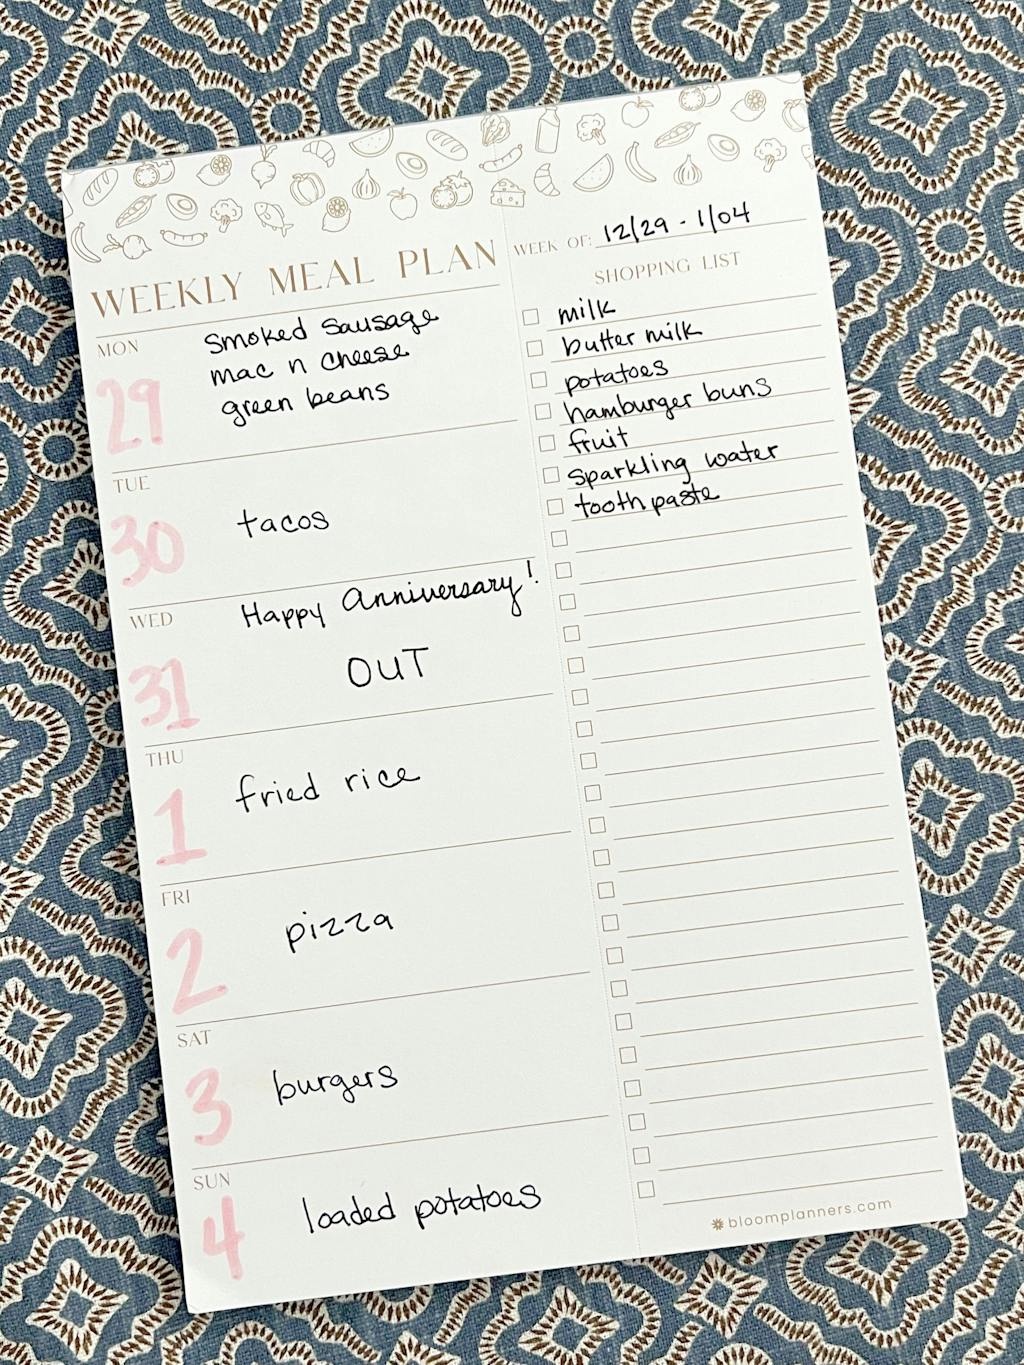 WEEKLY MEAL PLAN
MON
29
smoked sausage
mac n cheese
green beans
TUE
30
tacos
WED
31
Happy Anniversary!
OUT
THU
1
fried rice
FRI
2
pizza
SAT
3
burgers
SUN
4
loaded potatoes
WEEK OF: 12/29 - 1/04
SHOPPING LIST
milk
butter milk
potatoes
hamburger buns
fruit
sparkling water
tooth paste
bloomplanners.com